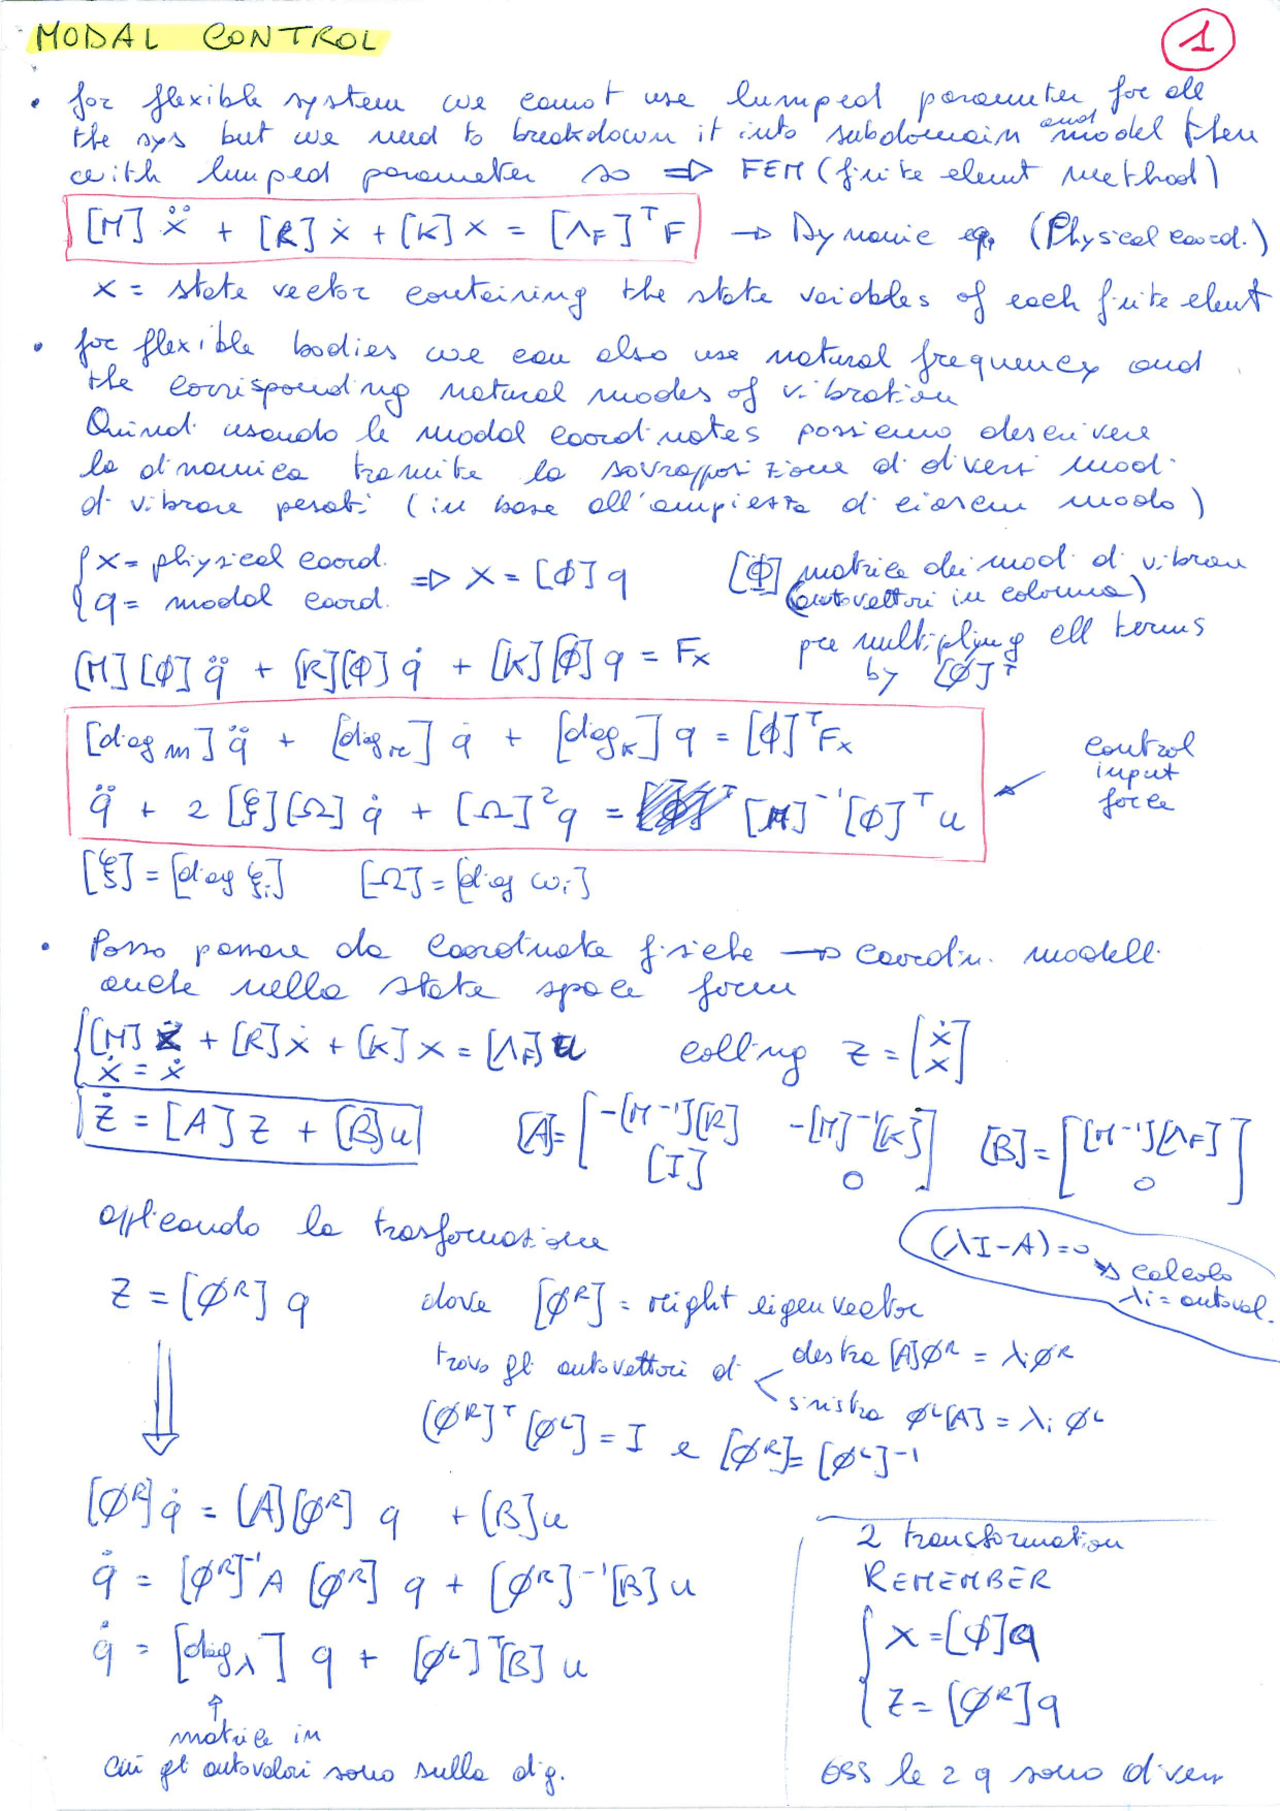 MODAL CONTROL
1
• for flexible system we cannot use lumped parameter for all
the sys but we need to breakdown it into subdomain and model them
with lumped parameter so ⇒ FEM (finite elemt method)
[M] ẍ + [R] ẋ + [K] x = [Λ_F]^T F → Dynamic eq. (Physical coord.)
x = state vector containing the state variables of each finite elemt
• for flexible bodies we can also use natural frequency and
the corrisponding natural modes of vibration
Quindi usando le modal coordinates possiamo descrivere
la dinamica tramite la sovrapposizione di diversi modi
di vibrare pesati (in base all'ampiezza di ciascun modo)
{ x = physical coord.
q = modal coord. ⇒ x = [Φ] q
[Φ] matrice dei modi di vibrare
(autovettori in colonna)
[M][Φ] q̈ + [R][Φ] q̇ + [K][Φ] q = Fx
pre multipling all terms
by [Φ]^T
[diag m] q̈ + [diag r] q̇ + [diag k] q = [Φ]^T Fx
q̈ + 2 [ξ][Ω] q̇ + [Ω]² q = [M]^-1 [Φ]^T u
control
input
force
[ξ] = [diag ξi] [Ω] = [diag ωi]
• Posso passare da coordinate fisiche → coordin. modali
anche nella state space form
{ [M] ẍ + [R] ẋ + [K] x = [Λ_F] u calling z = [ẋ x]
ẋ = ẋ
ż = [A] z + [B] u [A] = [-[M^-1][R] -[M]^-1[K] [I] 0] [B] = [[M^-1][Λ_F] 0]
applicando la trasformazione
(λI-A)=0
→ calcolo
λi = autoval.
z = [Φ^R] q dove [Φ^R] = right eigenvector
trovo gli autovettori di < destra [A]Φ^R = λi Φ^R
sinistra Φ^L[A] = λi Φ^L
(Φ^R]^T [Φ^L] = I e [Φ^R] = [Φ^L]^-1
[Φ^R] q̇ = [A][Φ^R] q + [B] u
q̇ = [Φ^R]^-1 A [Φ^R] q + [Φ^R]^-1 [B] u
q̇ = [diag λ] q + [Φ^L]^T [B] u
↑
matrice in
cui gli autovalori sono sulla dig.
2 transformation
REMEMBER
{ x = [Φ] q
z = [Φ^R] q
OSS le 2 q sono diver